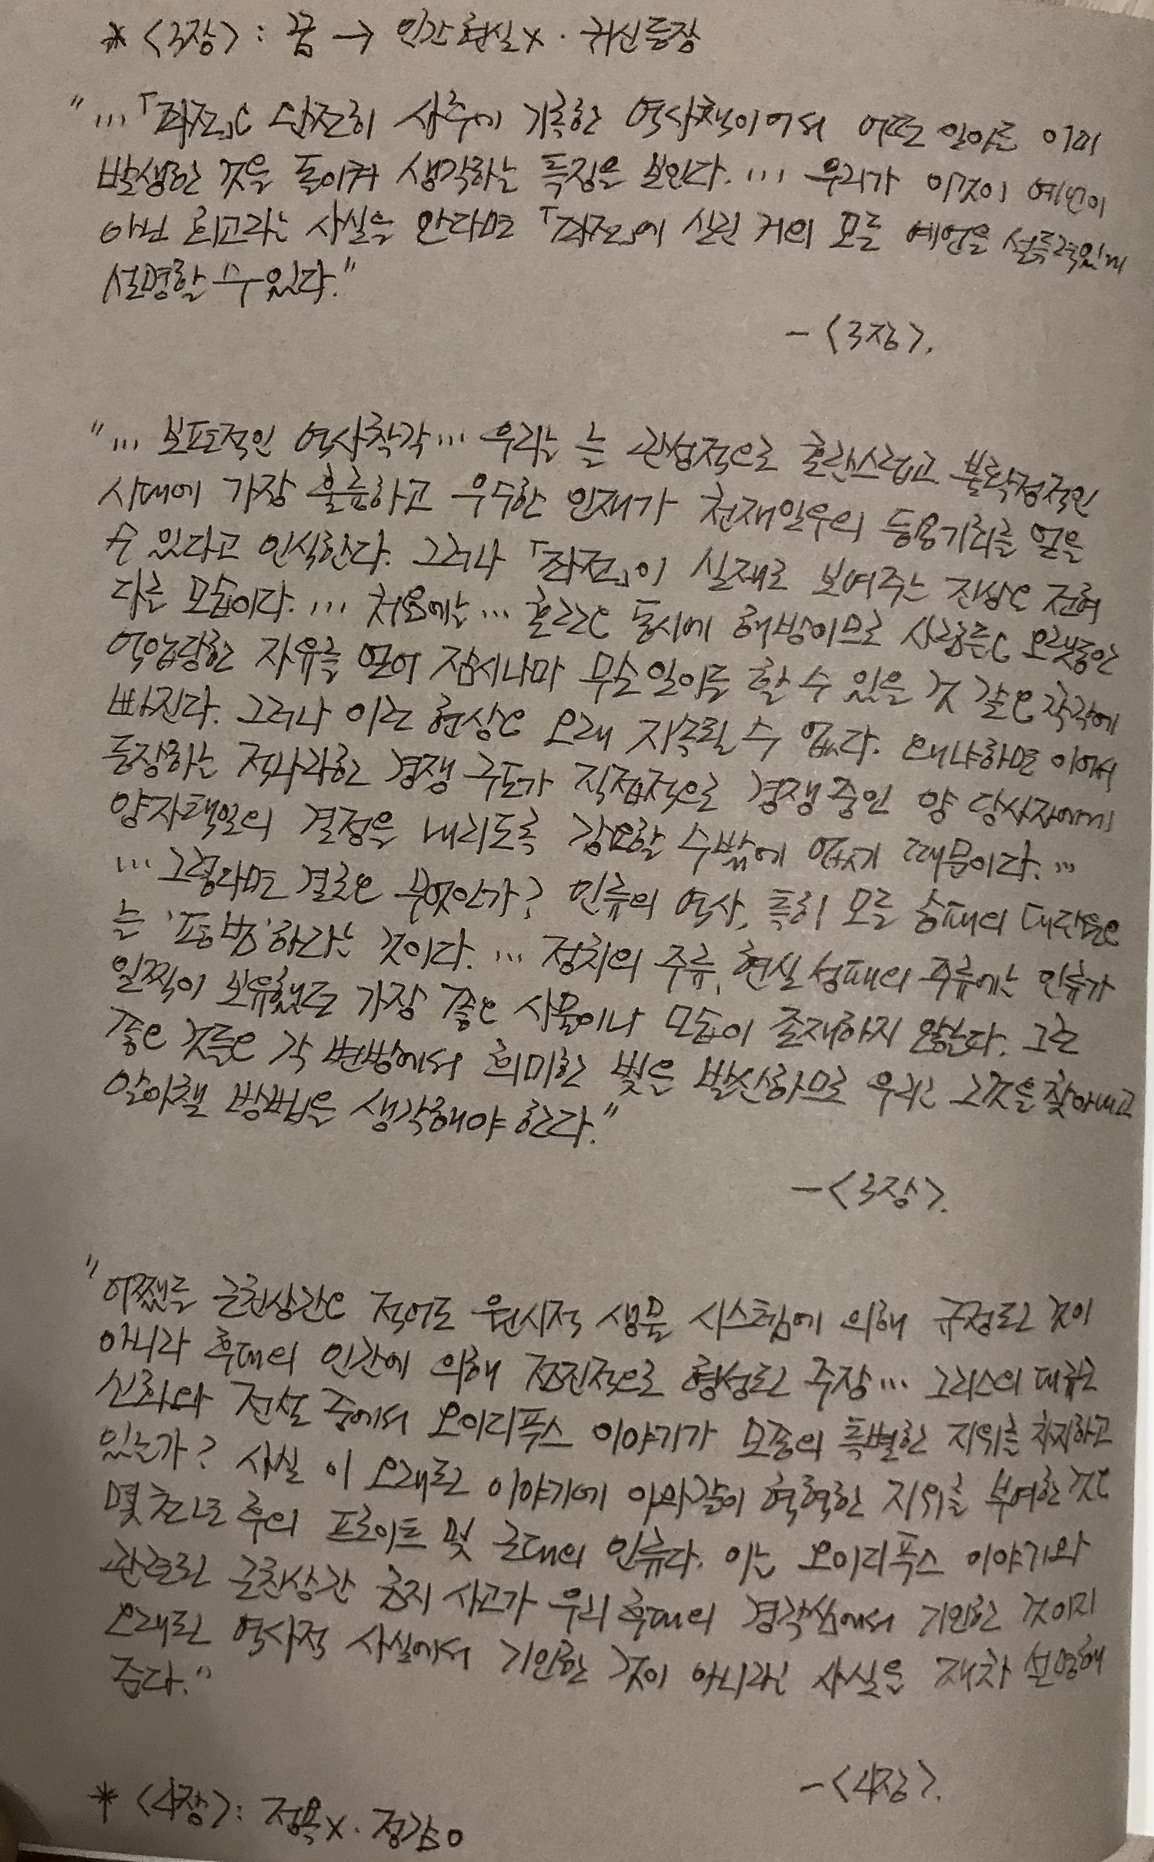 * <3장>: 꿈 → 인간현실x. 귀신등장
"…「좌전」은 완전히 사후에 기록한 역사책이어서 어떤 일이든 이미
발생한 것을 돌이켜 생각하는 특징을 보인다.… 우리가 이것이 예언이
아닌 회고라는 사실을 안다면 「좌전」에 실린 거의 모든 예언을 설득력있게
설명할 수 있다."
-<3장>.
"… 보편적인 역사착각… 우리는 늘 관성적으로 혼란스럽고 불확정적인
시대에 가장 훌륭하고 우수한 인재가 천재일우의 등용기회를 얻을
수 있다고 인식한다. 그러나 「좌전」이 실제로 보여주는 진상은 전혀
다른 모습이다.… 처음에는… 혼란은 동시에 해방이므로 사람들은 오랫동안
억압당한 자유를 얻어 잠시나마 무슨 일이든 할 수 있을 것 같은 착각에
빠진다. 그러나 이런 현상은 오래 지속될 수 없다. 왜냐하면 이어서
등장하는 적나라한 경쟁 구도가 직접적으로 경쟁 중인 양 당사자에게
양자택일의 결정을 내리도록 강요할 수밖에 없기 때문이다.…
…그렇다면 결론은 무엇인가? 인류의 역사, 특히 모든 승패의 대답은
늘 '평범'하라는 것이다.… 정치의 주류, 현실 성패의 주류에는 인류가
일찍이 보유했던 가장 좋은 사물이나 모습이 존재하지 않는다. 그런
좋은 것들은 각 변방에서 희미한 빛을 발산하므로 우리는 그것을 찾아내고
알아챌 방법을 생각해야 한다."
-<3장>.
"어쨌든 근친상간은 적어도 원시적 생물 시스템에 의해 규정된 것이
아니라 후대의 인간에 의해 점진적으로 형성된 주장… 그리스의 대규모
신화와 전설 중에서 오이디푸스 이야기가 모종의 특별한 지위를 차지하고
있는가? 사실 이 오래된 이야기에 이와같이 혁혁한 지위를 부여한 것은
몇 천년 후의 프로이트 및 근대의 인류다. 이는 오이디푸스 이야기와
관련된 근친상간 금지 사고가 우리 후대의 경각심에서 기인한 것이지
오래된 역사적 사실에서 기인한 것이 아니라는 사실을 재차 설명해
준다."
-<4장>.
* <4장>: 정욕x. 정감o